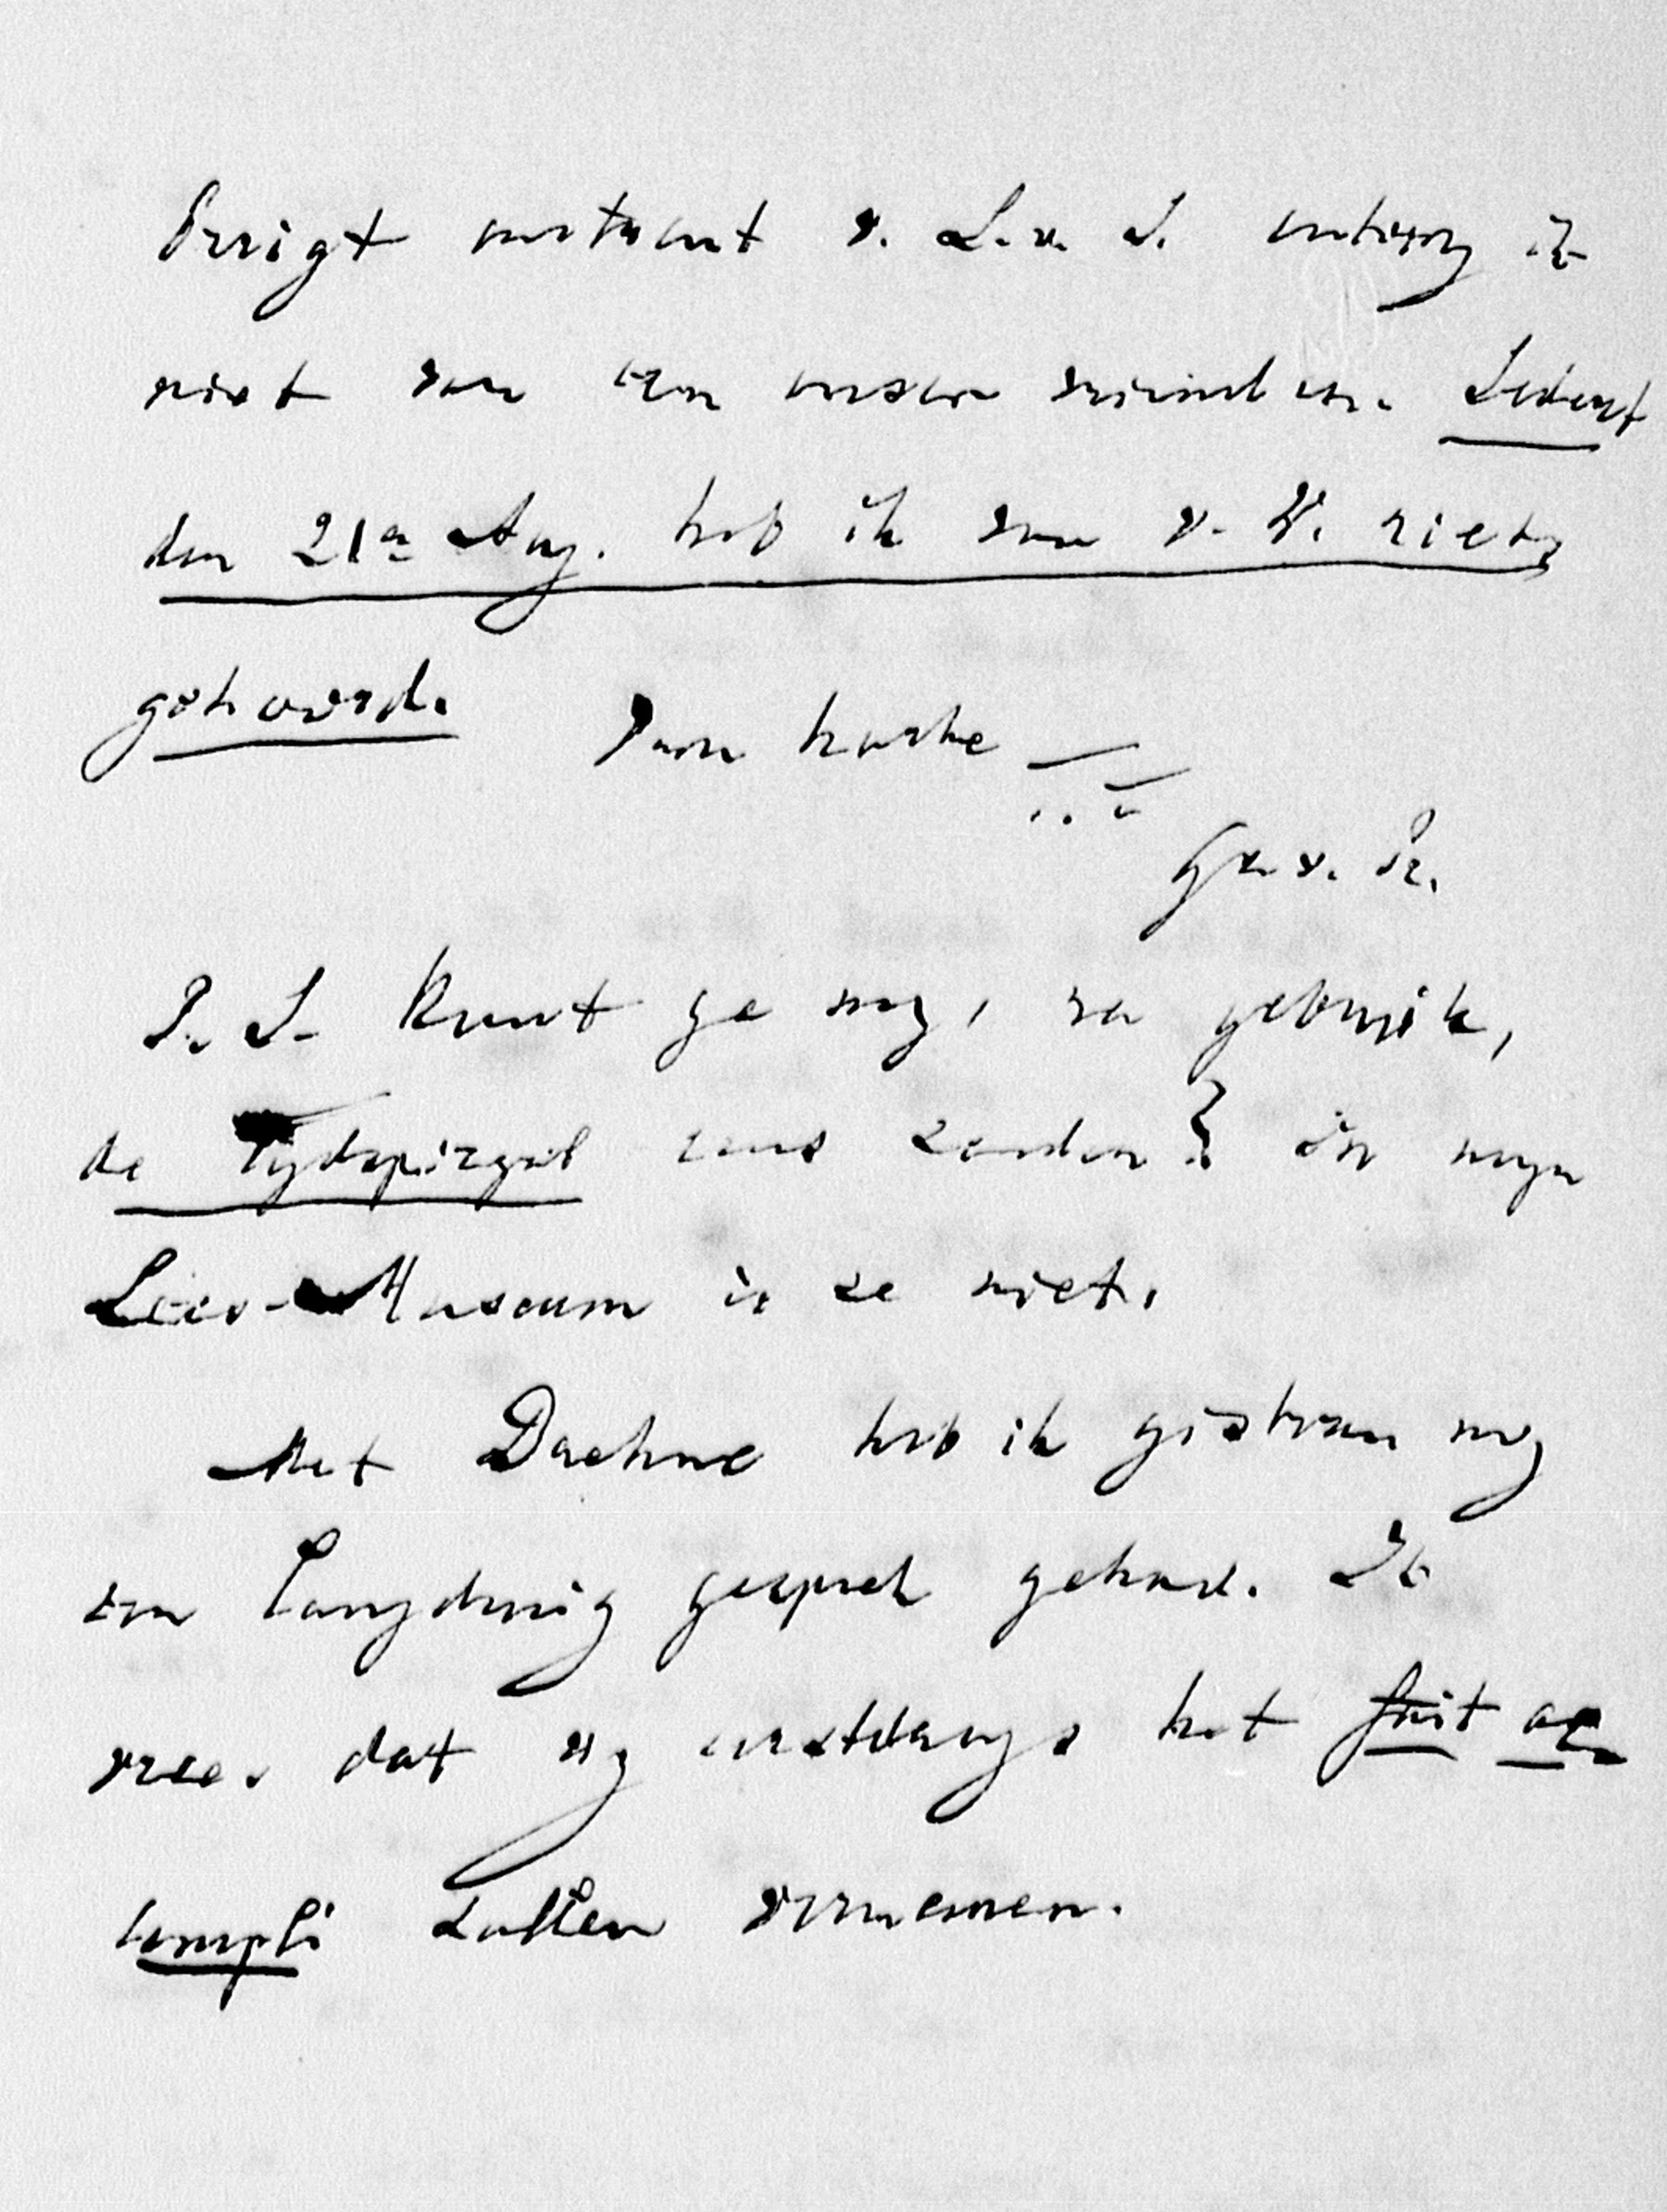 Berigt omtrent v. L. v. S. ontving ik
niet van een onzer vrienden. Sedert
den 21n Aug. heb ik van v. V. niets
gehoord. Van harte
Gr. v. Pr.
P. S. Kunt ge my, na gebruik,
de Tydspiegel eens zenden? in myn
Lees-Museum is ze niet.
Met Daehne heb ik gisteren nog
een langdurig gesprek gehad. Ik
vrees dat wy eerstdaags het fuit ac
templi zullen vernemen.